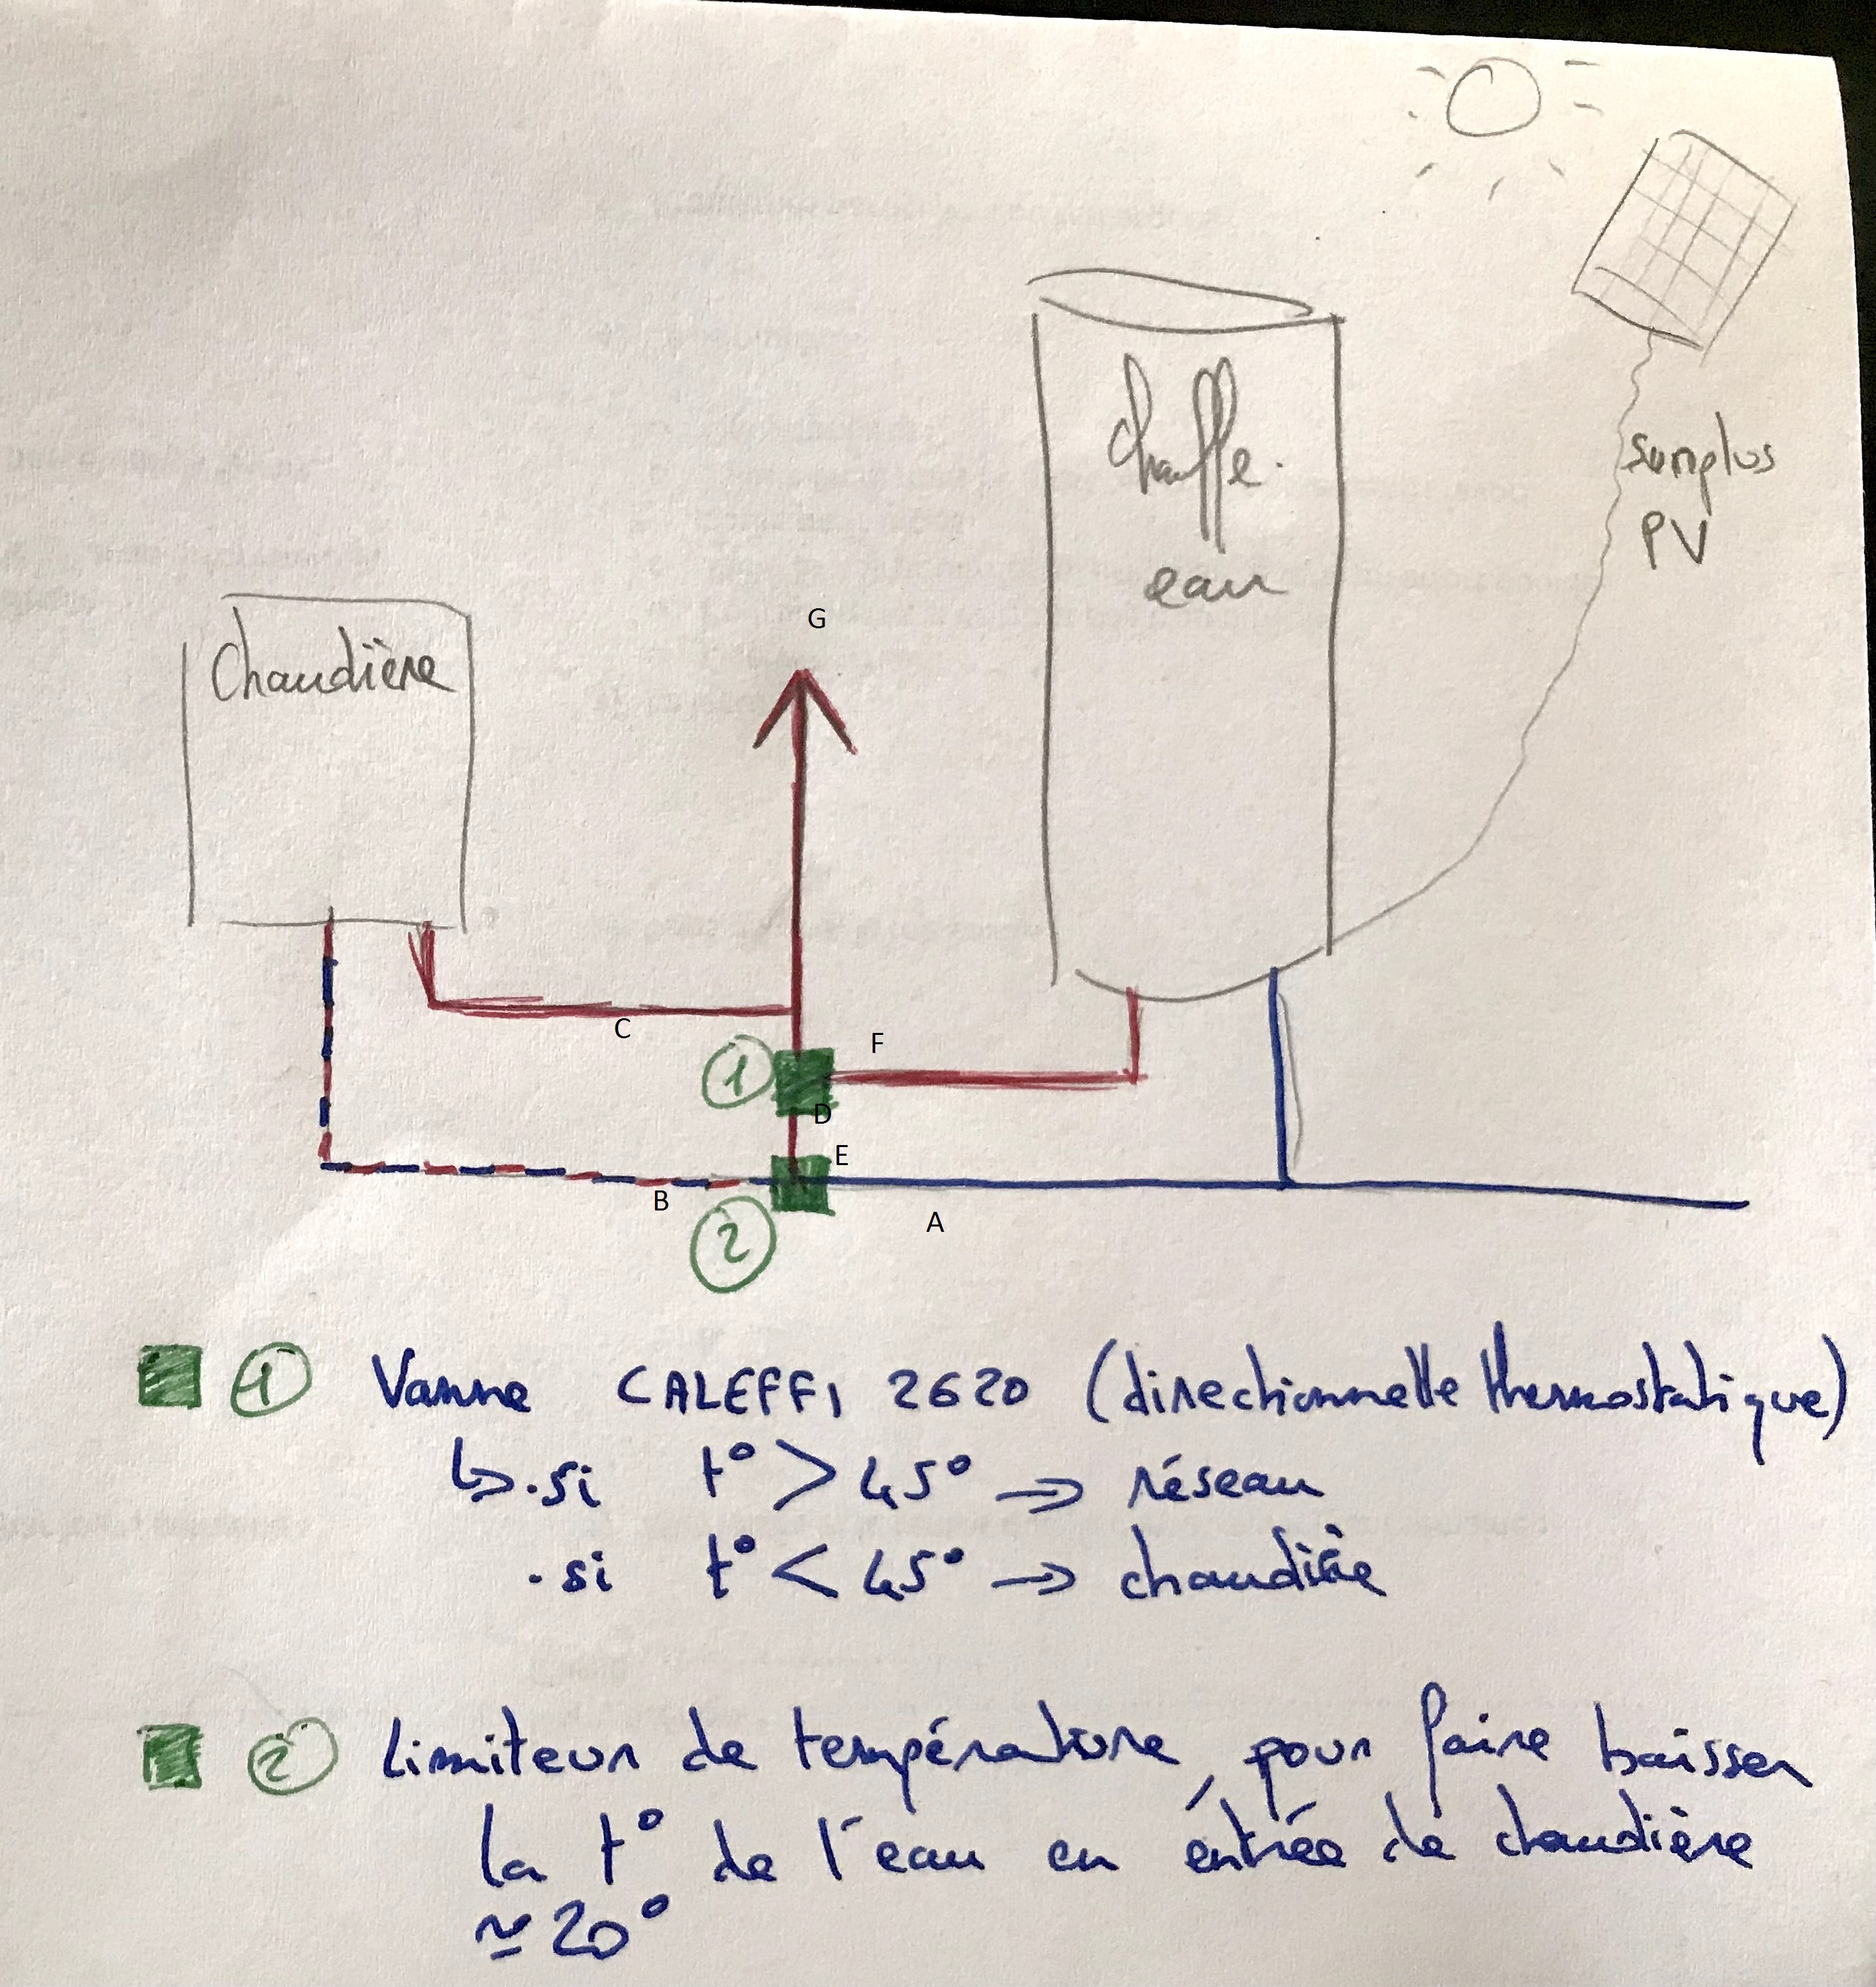 surplus
PV
Chauffe.
eau
Chaudière
G
C
F
1
D
E
B
A
2
1 Vanne CALEFFI 2620 (directionnelle thermostatique)
↳ . si t° > 45° → réseau
. si t° < 45° → chaudière
2 Limiteur de température, pour faire baisser
la t° de l'eau en entrée de chaudière
≃ 20°